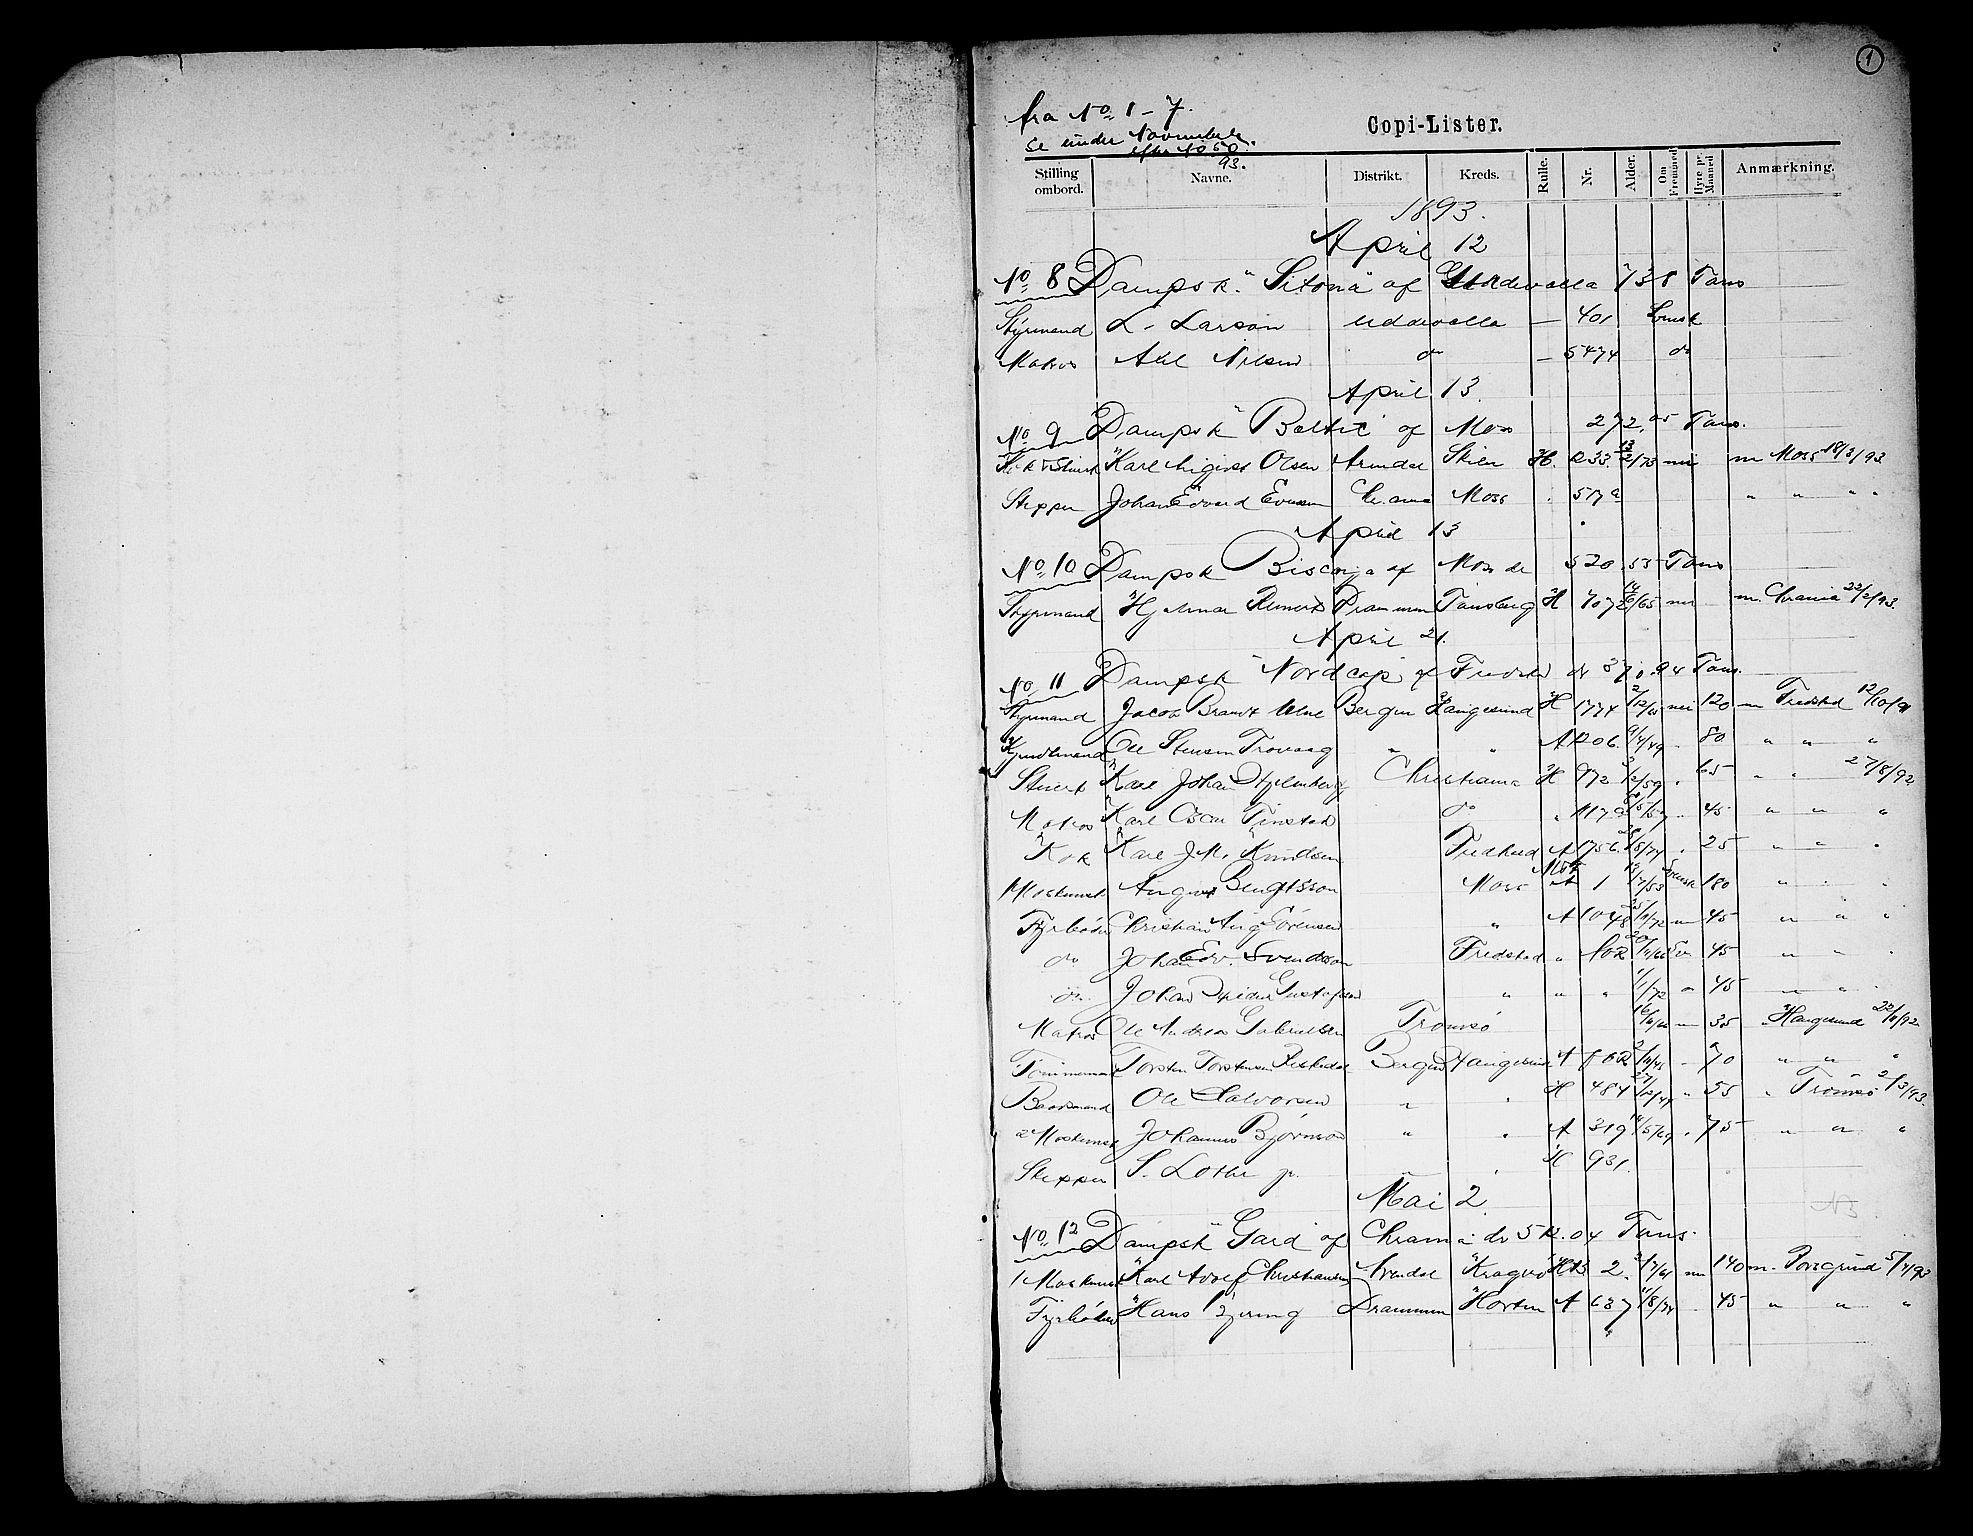 1
fra No. 1 - 7.
se under November
efter No 50.
93.
Copi-Lister.
Stilling ombord. Navne. Distrikt. Kreds. Rulle. Nr. Alder. Om Fremmed Hyre pr. Maaned Anmærkning.
1893.
April 12
No. 8 Dampsk. "Sitona" af Uddevalla 738 Tons
Styrmand L. Larson Uddevalla — 401 Svensk
Matros Axl Nilson do — 5474 do
April 13.
No. 9 Dampsk "Baltic" af Moss 272,05 Tons.
Karl August Olsen Arendal Skien H. 233 13/2/73 nei m Moss 18/3/93
Skipper Johan Edvard Evensen Chr.ania Moss " 517 " " " "
April 13
No. 10 Dampsk Biscaya af Moss dr 520.53 Tons
Styrmand Hjalmar Reinert Drammen Tønsberg H 707 nei m. Chrania 22/2/93.
April 21.
No. 11 Dampsk "Nordcap" af Fredstd dr 370.94 Tons.
Styrmand Jacob Brandt Bergen Haugesund H 1774 nei 120 m Fredstad 12/10/91
Kjendtmand Ole Stensen Trovaag " " A 1206 9/4/49 " 80 " " "
Stuert Karl Johan Christiania H 972 3/2/59 " 65 " " 27/8/92
Matros Karl Oscar Finstad do " 1179 " 45 " " "
Kok Karl J.M. Knudsen Fredstad A 1756 " 25 " " "
Maskinist August Bengtsson Moss A 1 19/7/53 Svensk 180 " " "
Fyrbøder Christian Aug Sörensen " A 1048 25/11/72 — 45 " " "
do Johan Edv. Svendsson Fredstad " 20/11/62 Sv 45 " " "
do Johan Gustafsson " " " 1/1/72 " 45 " " "
Matros Ole Andreas Gabrielsen Tromsö — 35 " Haugesund 22/11/92
Tømmermand Torsten Torstensen Bergen Haugesund A — 70 " " "
Baadsmand Ole Halvorsen " " H 484 27/12/47 " 55 " Tromsö 2/3/93.
2 Maskinist Johannes Bjørnson " " A 319 14/5/69 " 75 " " "
Skipper S. Lothe jr. " " H 931.
Mai 2.
No. 12 Dampsk "Gard" af Chrania dr 512.04 Tons.
1 Maskinist Karl Adolf Christiansen Arendal Kragerö 2. 2/7/61 nei 140 m. Porsgrund 5/4/93
Fyrbøder Hans Bjerring Drammen Horten A 637 1/8/74 " 45 " " "